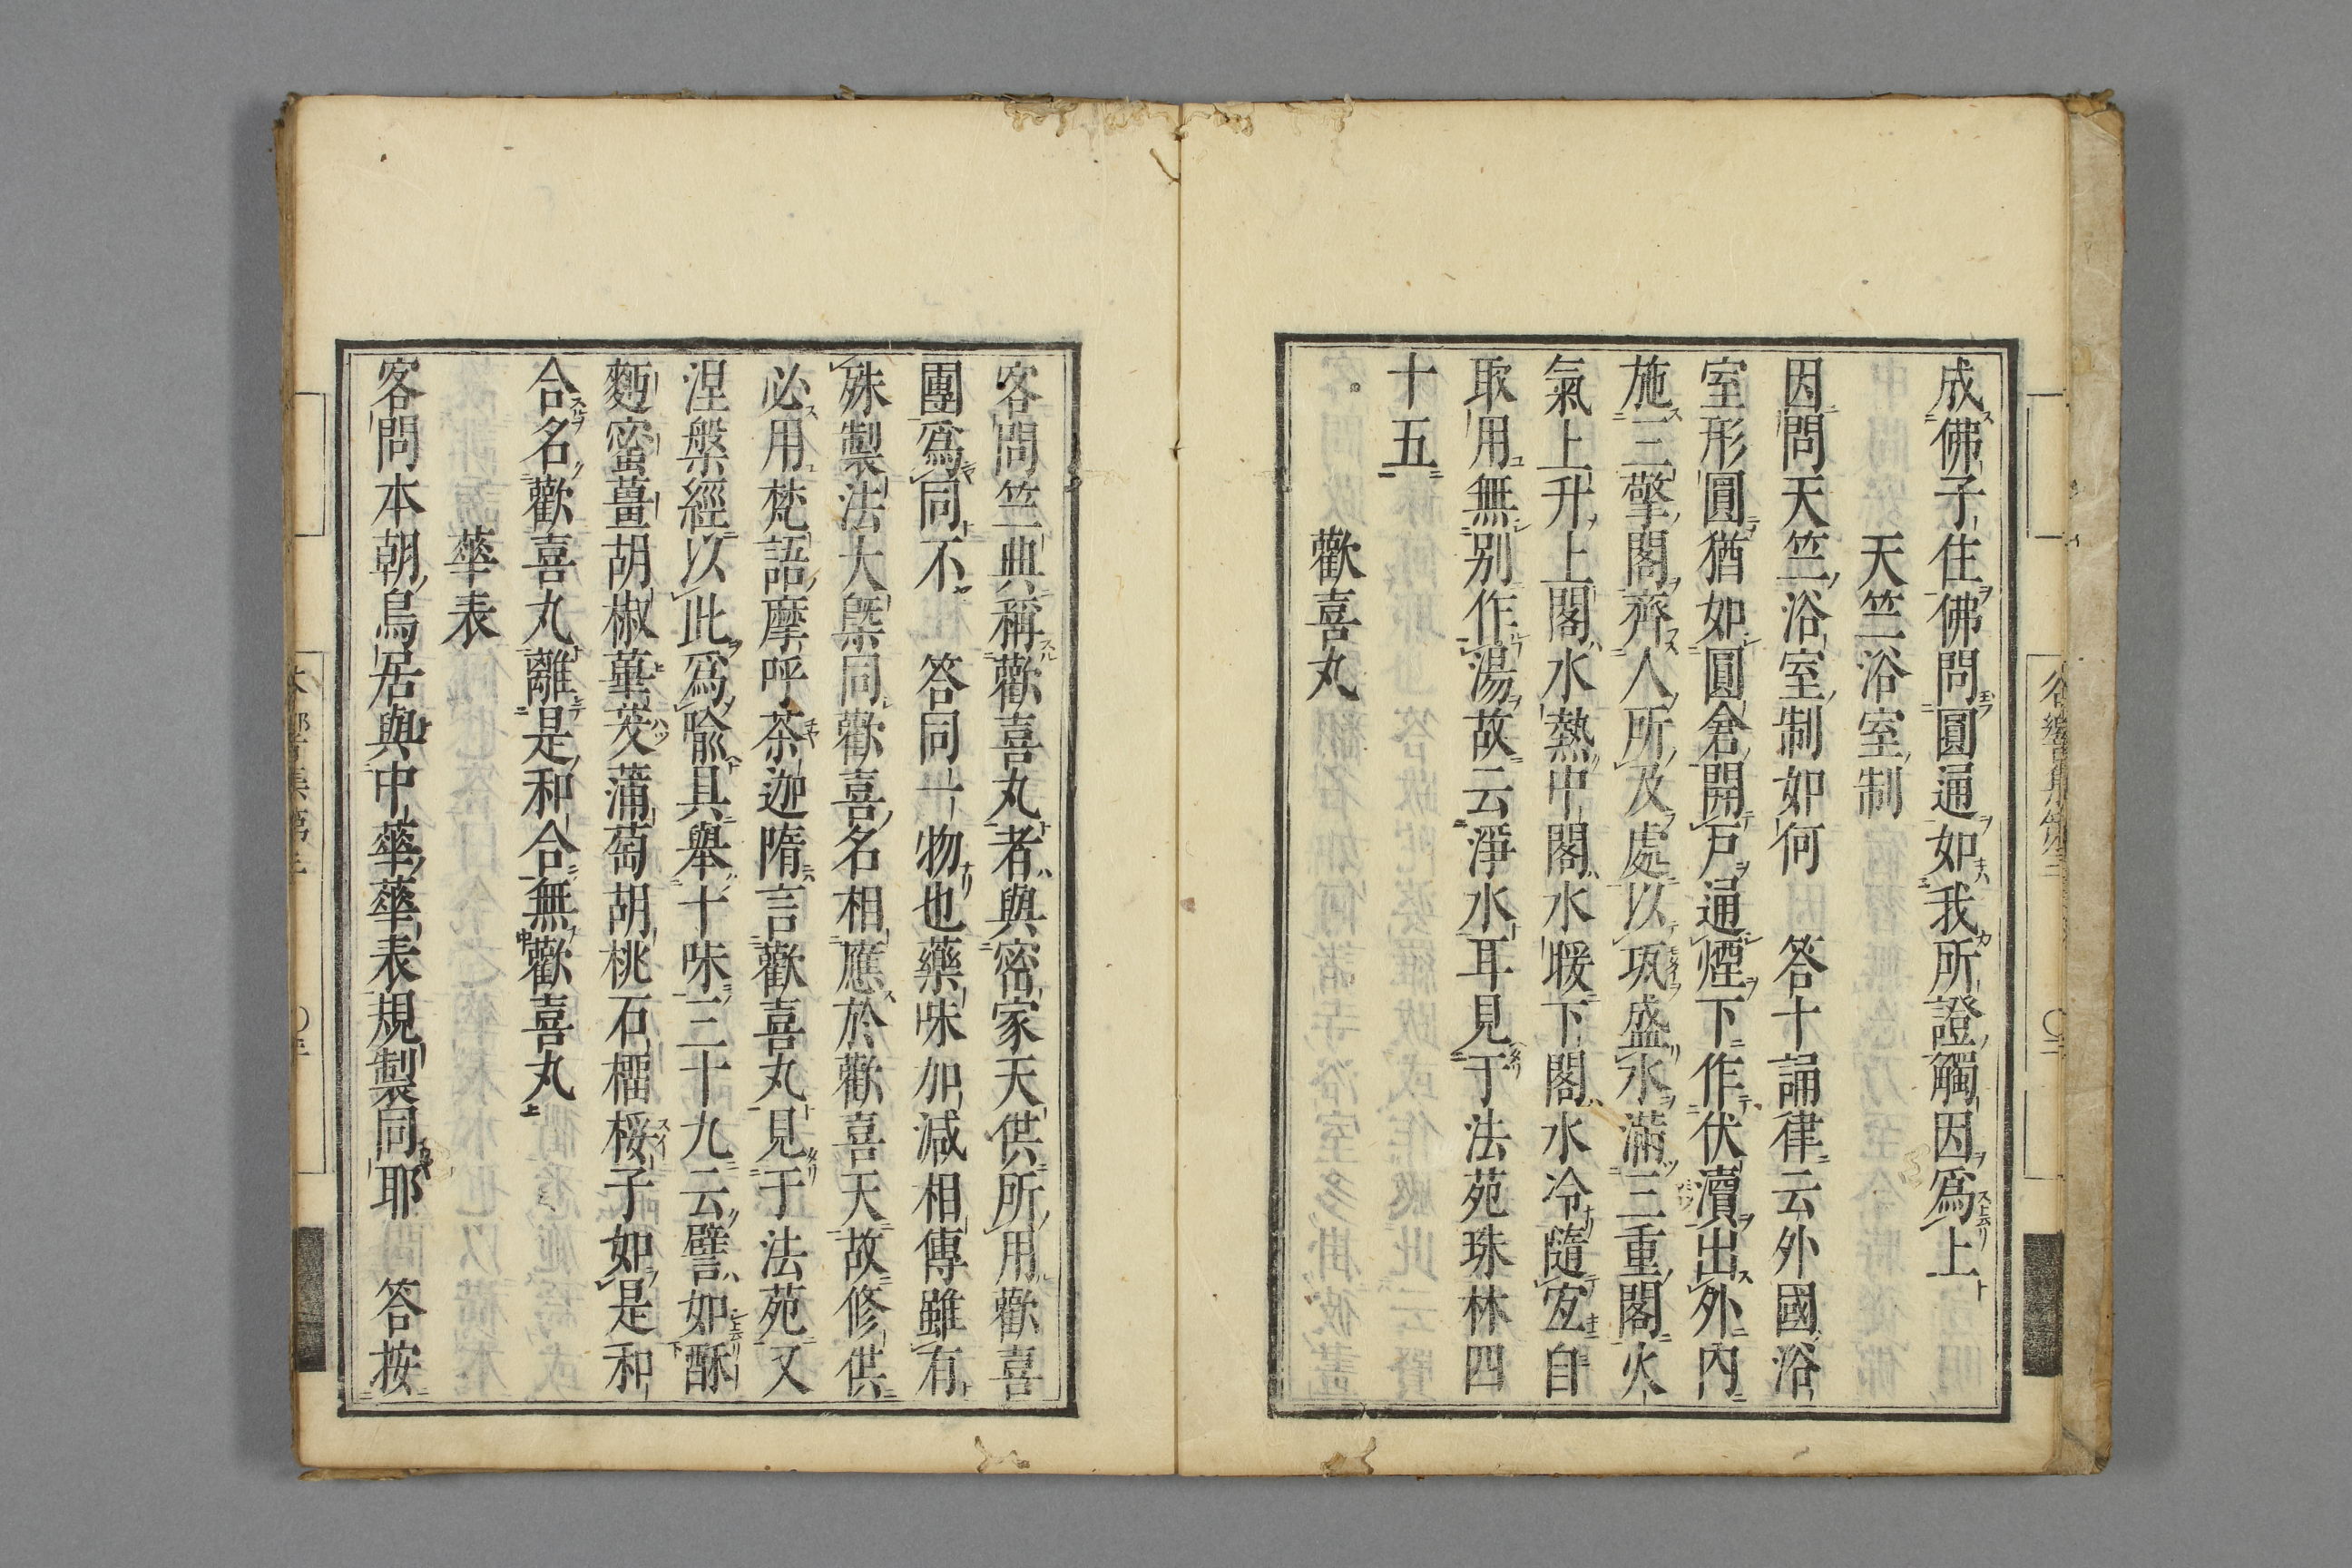 成佛子住佛問圓通如我所證觸因爲上
天竺浴室制
因問天竺浴室制如何　答十誦律云外國浴
室形圓猶如圓倉開戸通煙下作伏瀆出外內
施三擎閣齊人所及處以瓨盛水滿三重閣火
氣上升上閣水熱中閣水暖下閣水冷隨宐自
取用無别作湯故云淨水耳見于法苑珠林四
十五
歡喜丸
客問竺典稱歡喜丸者與密家天供所用歡喜
團爲同不　答同一物也藥味加減相傳雖有
殊製法大槩同歡喜名相應於歡喜天故修供
必用梵語摩呼荼迦隋言歡喜丸見于法苑又
涅槃經以此爲喻具舉十味三十九云譬如酥
麪蜜薑胡椒蓽茇蒲萄胡桃石榴桵子如是和
合名歡喜丸離是和合無歡喜丸
華表
客問本朝鳥居與中華華表規製同耶　答按